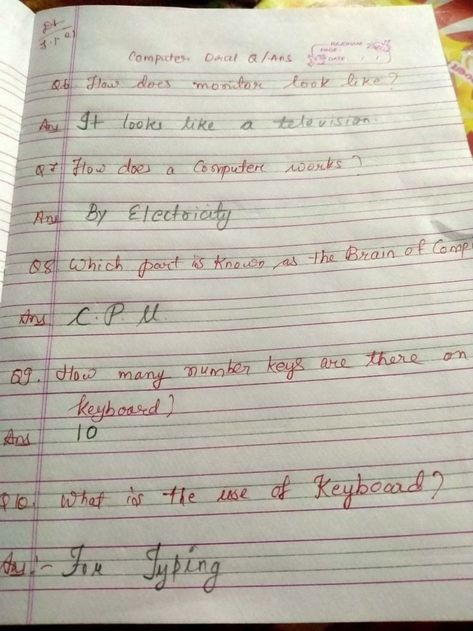 Dt
Computer Oral Q/Ans
PAGE:
DATE: / /
Q.6 How does monitor look like?
Ans It looks like a television.
Q7 How does a Computer works?
Ans By Electricity
Q8 Which part is Known as the Brain of Comp
Ans C.P.U.
Q9. How many number keys are there on
Keyboard?
Ans 10
Q10. What is the use of Keyboard?
Ans:- For Typing